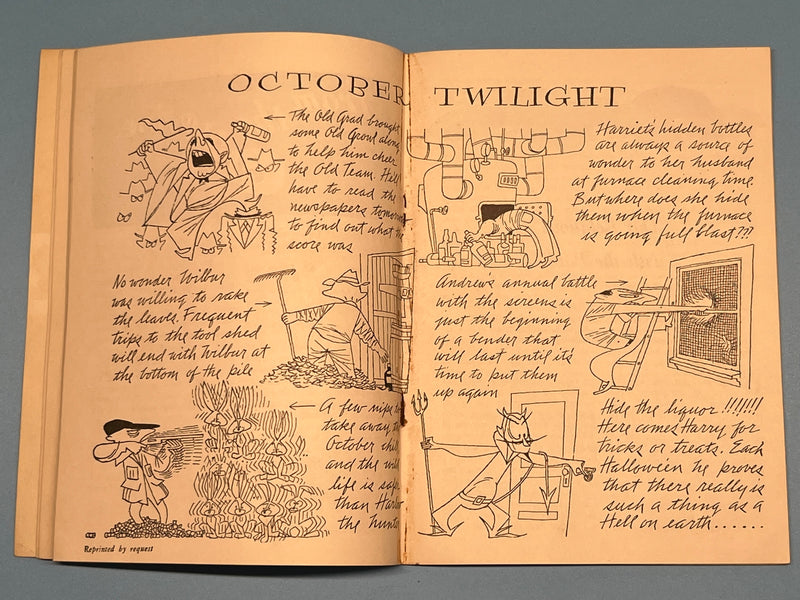 OCTOBER TWILIGHT
The Old Grad brought
some Old Growl along
to help him cheer
the Old Team. He'll
have to read the
newspapers
to find out what
score was
No wonder Wilbur
was willing to rake
the leaves. Frequent
trips to the tool shed
will end with Wilbur at
the bottom of the pile
A few nips
take away
October
and the
life is
than
the
Reprinted by request
Harriet's hidden bottles
are always a source of
wonder to her husband
at furnace cleaning time.
But where does she hide
them when the furnace
is going full blast???
Andrew's annual battle
with the screens is
just the beginning
of a bender that
will last until it's
time to put them
up again
Hide the liquor !!!!!!!
Here comes Harry for
tricks or treats. Each
Halloween he proves
that there really is
such a thing as a
Hell on earth......